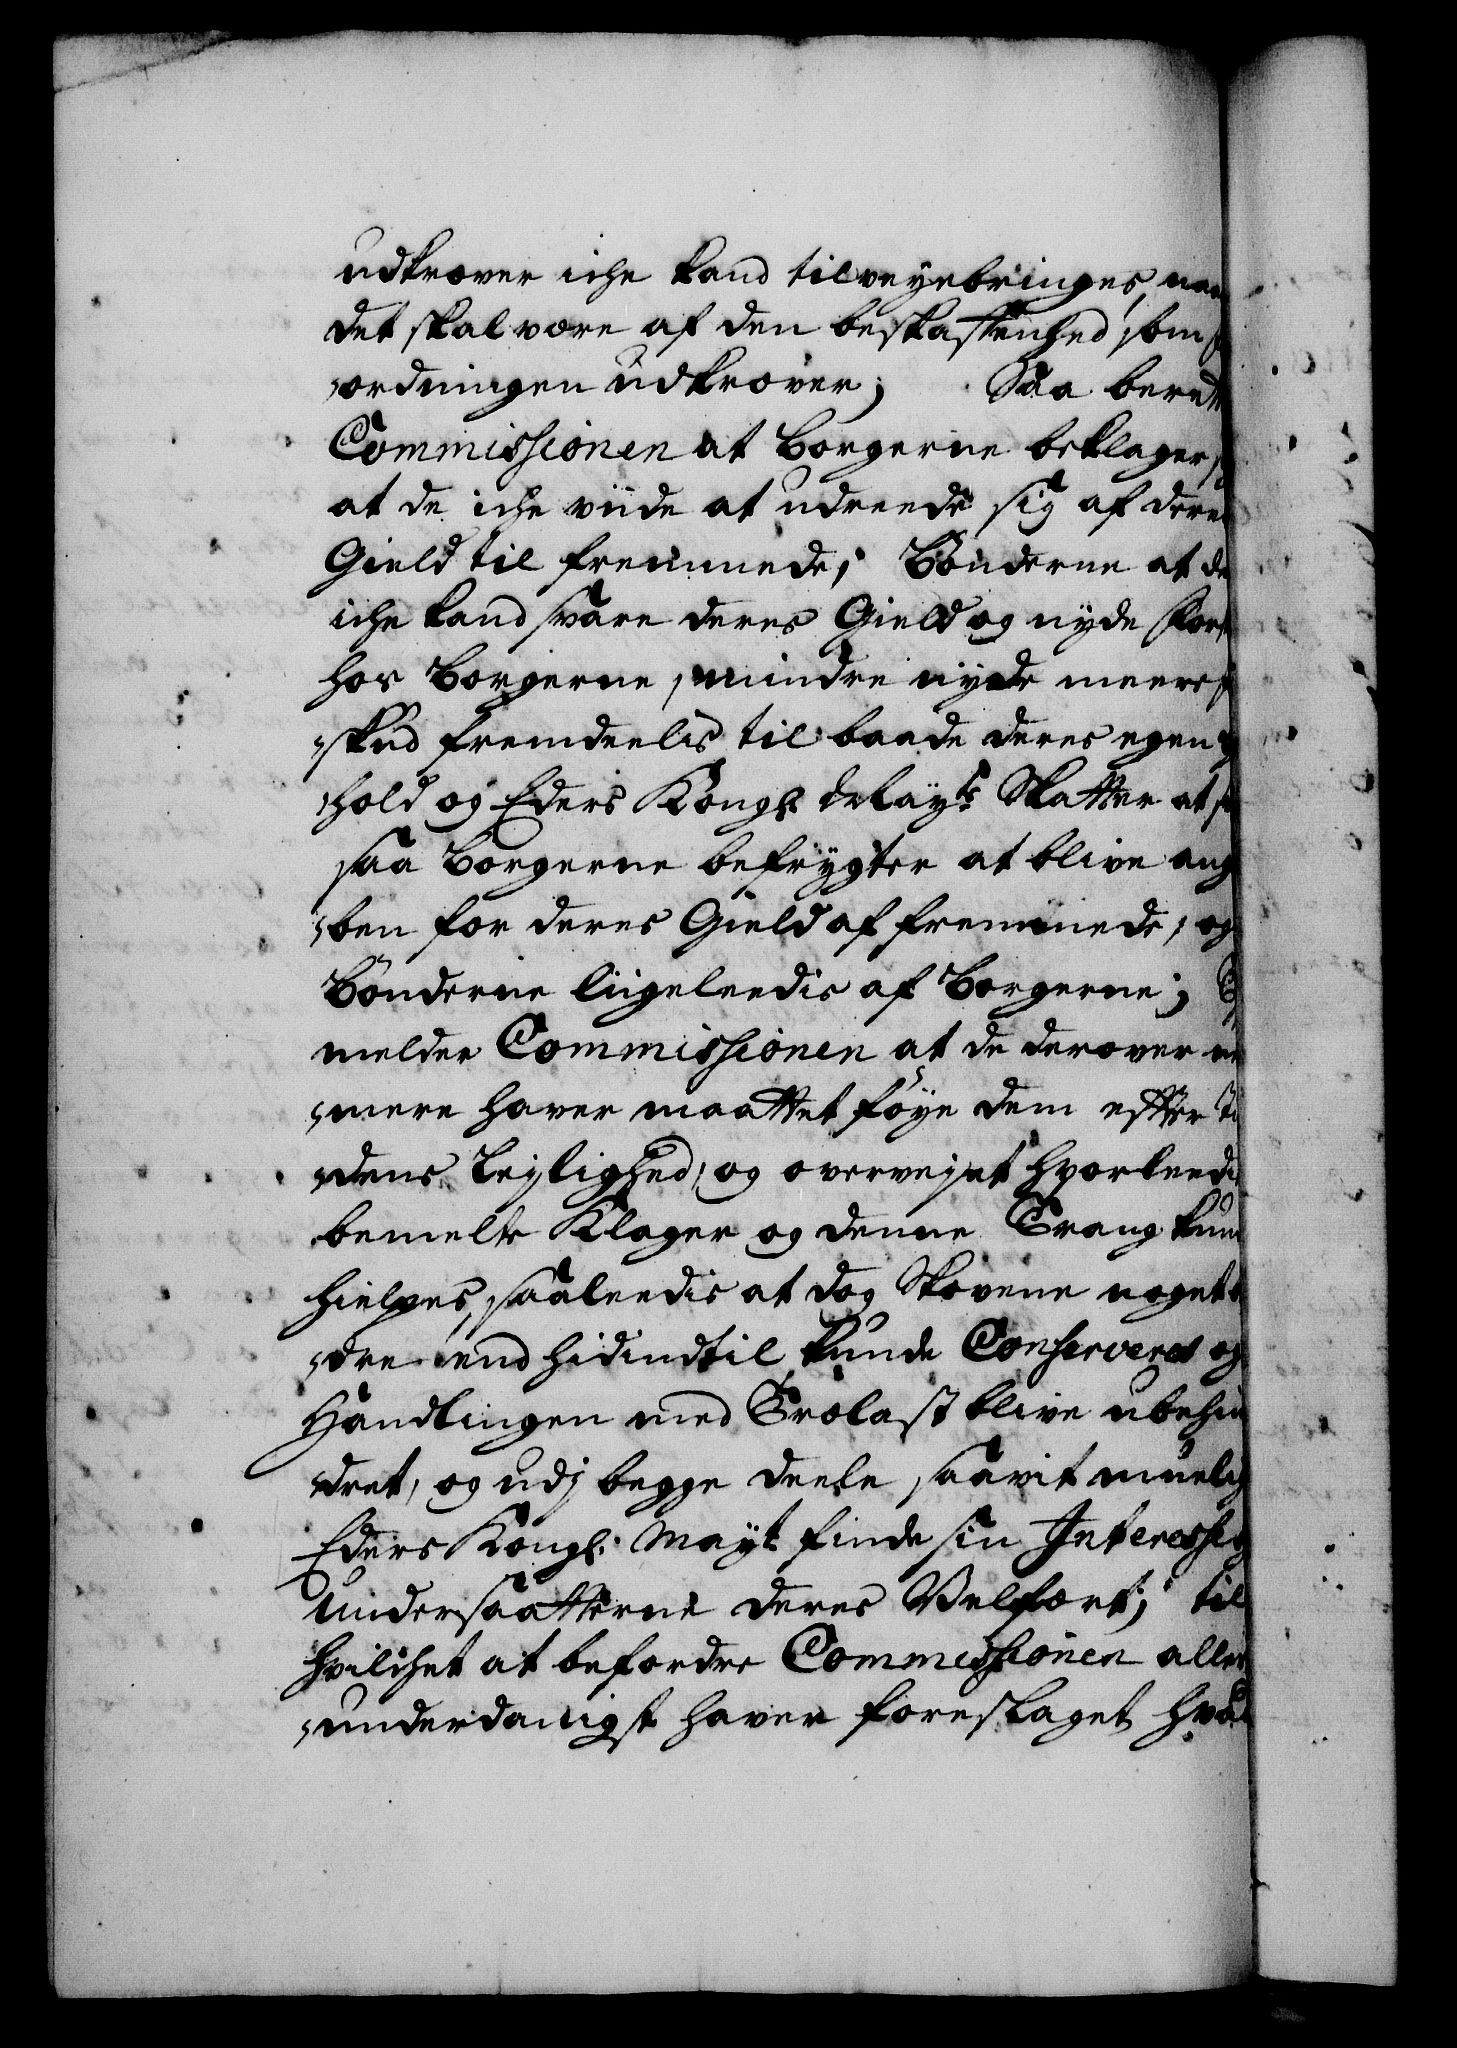 udkrever iche kand tilveyebringes, naar
det skal være af den beskaffenhed som
ordningen udkrever; Saa beretter
Commissionen at borgerne beklager
at de iche viide at udreede sig af deres
Gield til fremmede; Bönderne at de
iche kand svare deres Gield og nyde for
hos borgerne, mindre nyde meere
skud fremdeelis til baade deres egen
hold og Eders Kongl: Mayts Skatter at
saa borgerne befrygter at blive ang
ben for deres Gield af fremmede, og
Bönderne liigeleedis af borgerne;
melder Commissionen at de derover
mere haver maattet föye dem effter Ti
dens Lejlighed, og overvejet hvorleedis
bemelte Klager og denne Trang kunde
hielpes, saaleedis at dog Skovene noget
dre end hidindtil kunde Conserveres og
Handlingen med Trælast blive ubehin
dret, og udj begge deele saavit muelig
Eders Kongl: Mayt finde sin Interesse og
Undersaatterne deres Velfært; til
hvilchet at befordre Commissionen aller
underdanigst haver foreslaget hvad